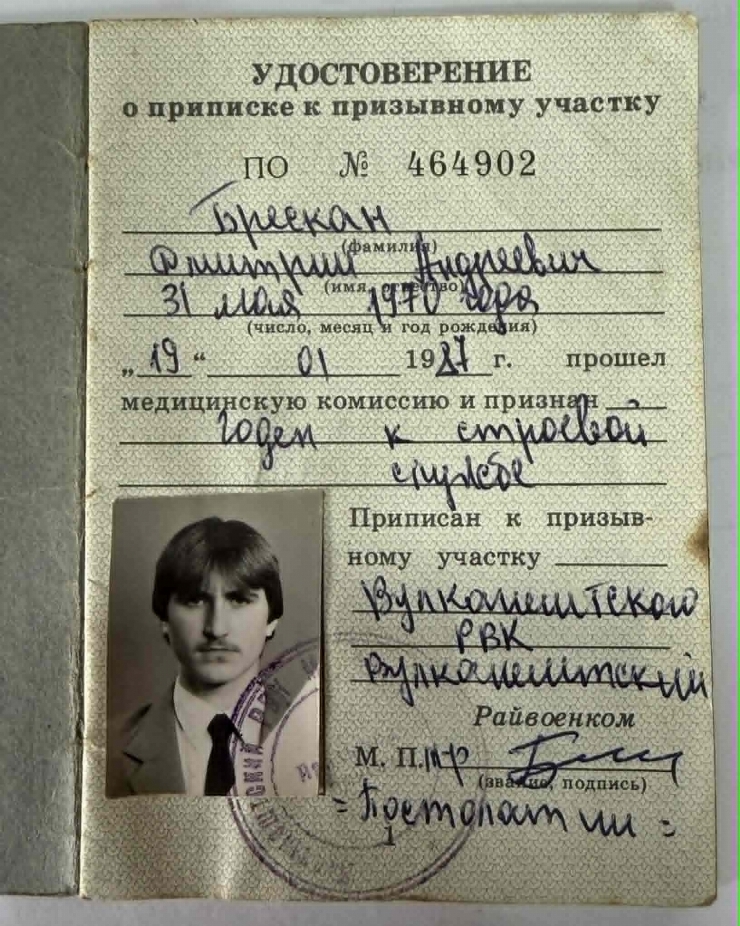 УДОСТОВЕРЕНИЕ
о приписке к призывному участку
ПО № 464902
Брескан
(фамилия)
Дмитрий Андреевич
(имя, отчество)
31 мая 1970 года
(число, месяц и год рождения)
„19“ 01 1987 г. прошел
медицинскую комиссию и признан
годен к строевой
службе
Приписан к призыв-
ному участку
Вулканештского
РВК
Вулканештский
Райвоенком
М. П.
(звание, подпись)
1